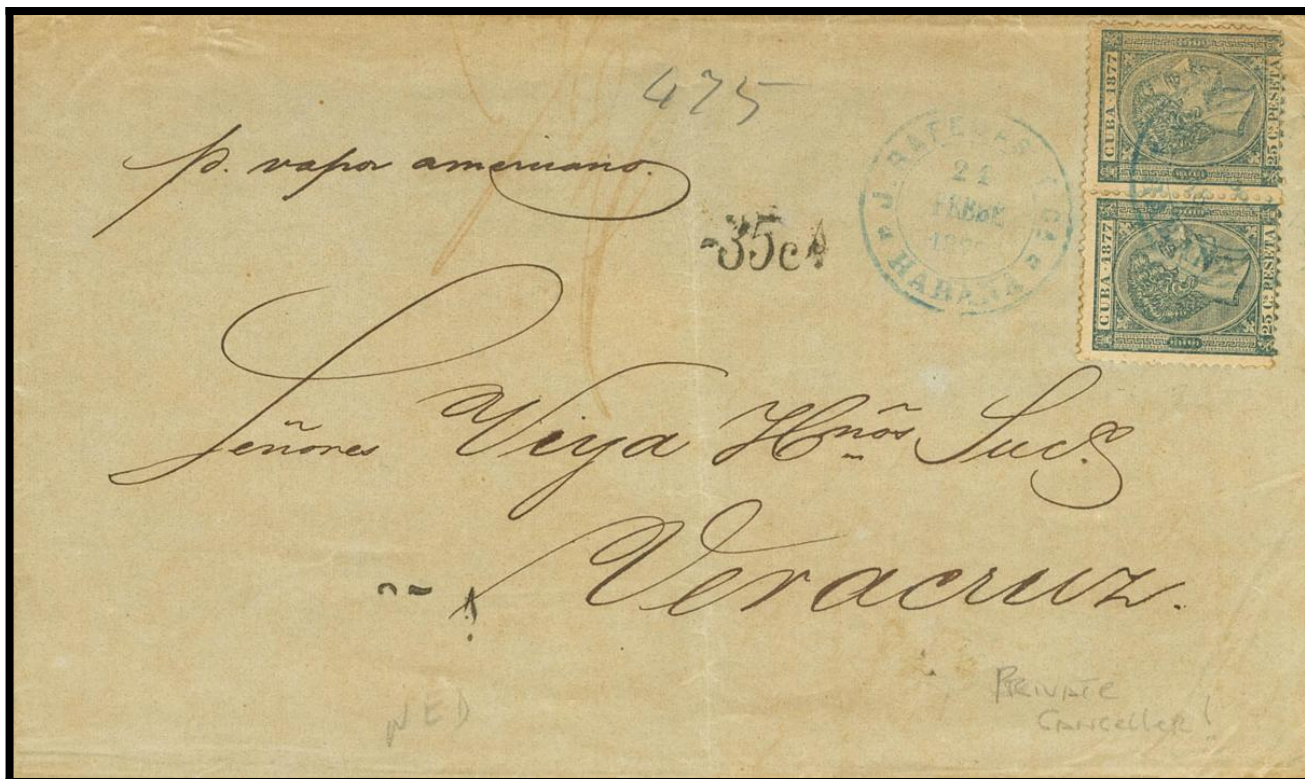 475
p. vapor americano.
J. RAFECAS Y Cª
21
HABANA
CUBA · 1877
25 Cs PESETA
CUBA · 1877
25 Cs PESETA
35c
Señores Viya Hnõs Sucs
Veracruz.
NED
PRIVATE
CANCELLER!